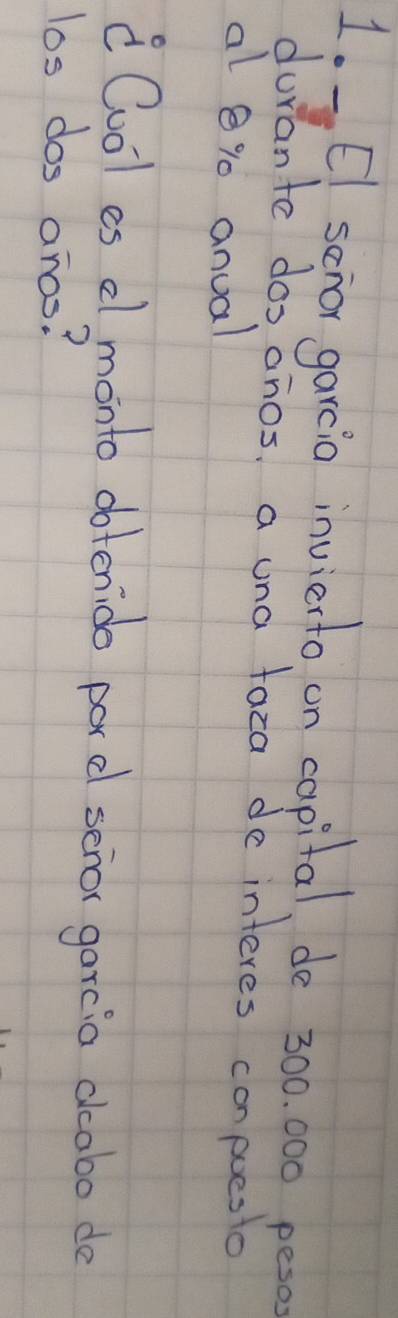 1.- El señor garcia invierto un capital de 300.000 pesos
durante dos años, a una taza de interes conpuesto
al 8% anual
¿Cuál es el monto obtenido por el señor garcia alcabo de
los dos años?